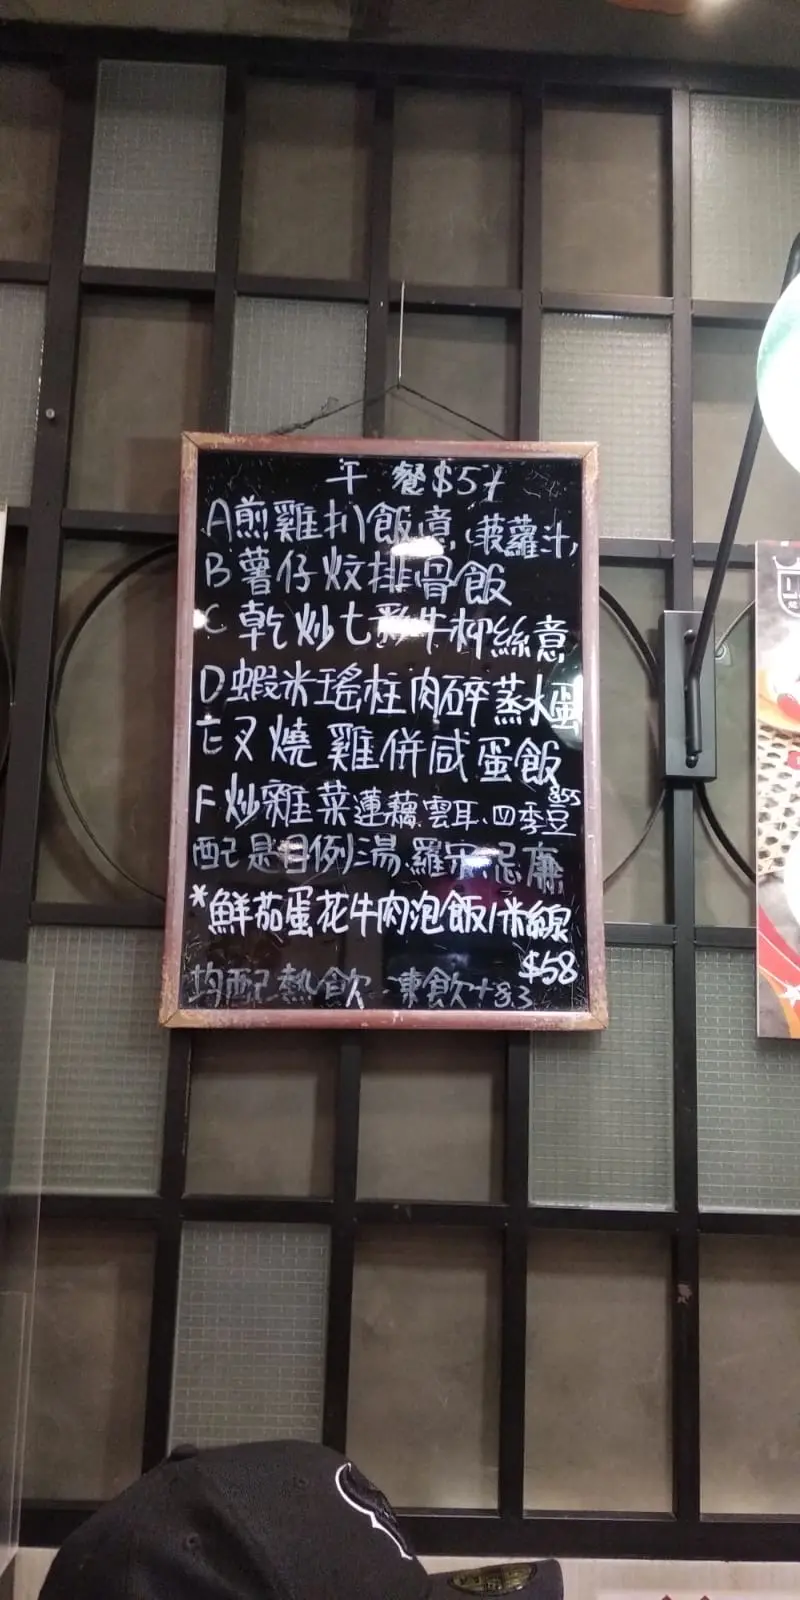 午 餐$57
A煎雞扒飯/意,(菠蘿汁)
B薯仔炆排骨飯
C乾炒七彩牛柳絲意
D蝦米瑤柱肉碎蒸水蛋
E叉燒雞併咸蛋飯
F炒雜菜蓮藕.雲耳.四季豆 $55
配是日例湯.羅宋.忌廉
*鮮茄蛋花牛肉泡飯/米線
$58
均配熱飲 凍飲+$3